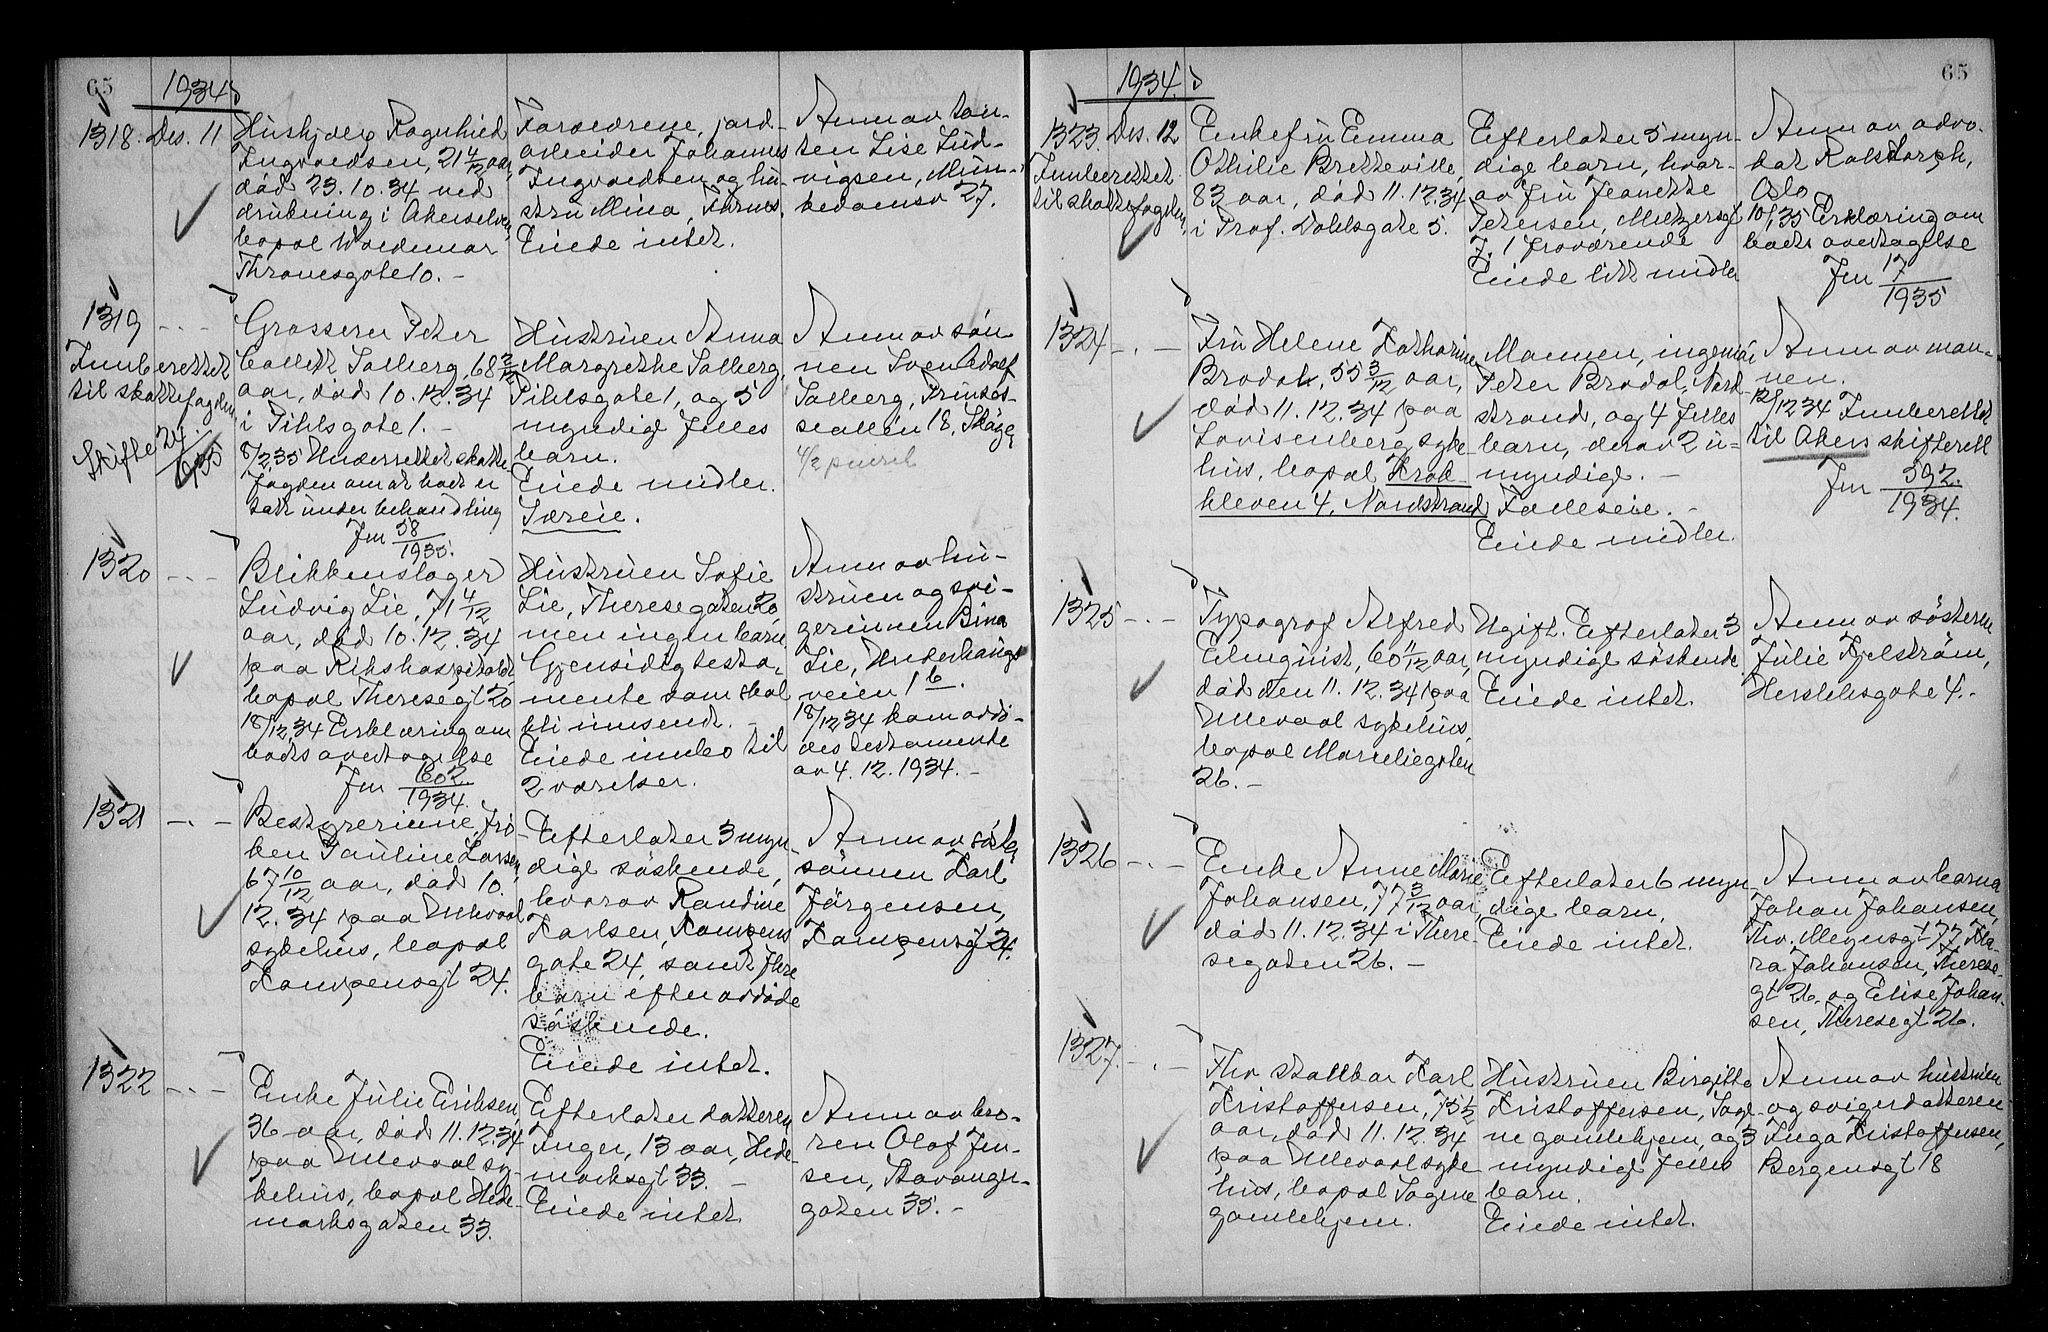 65
1934
1318. Des. 11
Hushjelp Ragnhild
Ingvaldsen, 21 4/12 aar,
død 23.10.34 ved
drukning i Akerselven,
bopæl Waldemar
Thranesgate 10. -
Forældrene, jord-
arbeider Johannes
Ingvaldsen og hu-
stru Mina,
Eiede intet.
Anm av tan-
ten Lise Lud-
vigsen, Mun-
kedamsv 27.
1319 - . -
Innberettet
til skattefogden,
Skifte 24
Grosserer Peter
Collett Solberg, 68 2/12
aar, død 10.12.34
i Pihlsgate 1. -
8/2 35 Underrettet skatte-
fogden om at boet er
tatt under behandling
Jnr 58/1935.
Hustruen Anna
Margrethe Solberg,
Pihlsgate 1, og 5
myndige felles
barn.
Eiede midler.
Særeie.
Anm av søn-
nen Sven Adolf
Solberg, Prinses-
sealléen 18, Skøyen
4/2 purret
1320 - . -
Blikkenslager
Ludvig Lie, 71 4/12
aar, død 10.12.34
paa Rikshospitalet
bopæl Theresegt 20
18/12 34 Erklæring om
boets overtagelse
Jnr 602/1934.
Hustruen Sofie
Lie, Theresegaten 20,
men ingen barn
Gjensidig testa-
mente som skal
bli innsendt. -
Eiede innbo til
2 værelser.
Anm av hu-
struen og svi-
gerinnen Bina
Lie, Underhaugs-
veien 1 b.
18/12 34 kom avdø-
des testamente
av 4.12.1934. -
1321 - . -
Bestyrerinne, frø-
ken Pauline Larsen,
67 10/12 aar, død 10.
12.34 paa Ullevaal
sykehus, bopæl
Kampensgt 24.
Efterlater 3 myn-
dige søskende,
hvorav Randine
Karlsen, Kampens
gate 24, samt flere
barn efter avdøde
søskende.
Eiede intet.
Anm av søster
sønnen Karl
Jørgensen,
Kampensgt 24.
1322 - . -
Enke Julie Eriksen,
36 aar, død 11.12.34
paa Ullevaal sy-
kehus, bopæl Hede-
marksgaten 33.
Efterlater datteren
Inger, 13 aar, Hede-
marksgt 33. -
Eiede intet
Anm av bro-
ren Olaf Jen-
sen, Stavanger-
gaten 35. -
65
1934.
1323. Des. 12
Innberettet
til skattefogden,
Enkefru Emma
Othilie Bretteville,
83 aar, død 11.12.34
i Prof. Dahlsgate 5.
Efterlater 5 myn-
dige barn, hvor-
av fru Jeanette
Petersen, Meltzersgt
7. 1 fraværende
Eiede litt midler
Anm av advo-
kat Rolstorph,
Oslo
10/1 35 Erklæring om
boets overtagelse
Jnr 17/1935
1324 - . -
Fru Helene Katharine
Brodal, 55 3/12 aar,
død 11.12.34 paa
Lovisenberg syke-
hus, bopæl Krok-
kleven 4, Nordstrand
Mannen, ingeniør
Peter Brodal, Nord-
strand, og 4 felles
barn, derav 2 u-
myndige. -
Fælleseie. -
Eiede midler.
Anm av man-
nen.
12/12 34 Innberettet
til Akers skifterett
Jnr 592/1934.
1325 - . -
Typograf Alfred
Elmquist, 60 11/12 aar,
død den 11.12.34 paa
Ullevaal sykehus,
bopæl Marieliegaten
26. -
Ugift. Efterlater 3
myndige søskende
Eiede intet.
Anm av søsteren
Julie Fjelstrøm,
Herslebsgate 4. -
1326 - . -
Enke Anne Marie
Johansen, 77 3/12 aar,
død 11.12.34 i There-
segaten 26. -
Efterlater 6 myn-
dige barn.
Eiede intet.
Anm av barna
Johan Johansen,
Thv. Meyersgt 77, Kla-
ra Johansen, Therese-
gt 26. og Elise Johan-
sen, Theresegt 26.
1327. - . -
Fhv stallkar Karl
Kristoffersen, 75 1/2
aar, død 11.12.34
paa Ullevaal syke
hus, bopæl Sagene
gamlehjem.
Hustruen Birgitte
Kristoffersen, Sage-
ne gamlehjem, og 3
myndige felles
barn.
Eiede intet.
Anm av hustruen
og svigerdatteren
Inga Kristoffersen,
Bergensgt 18